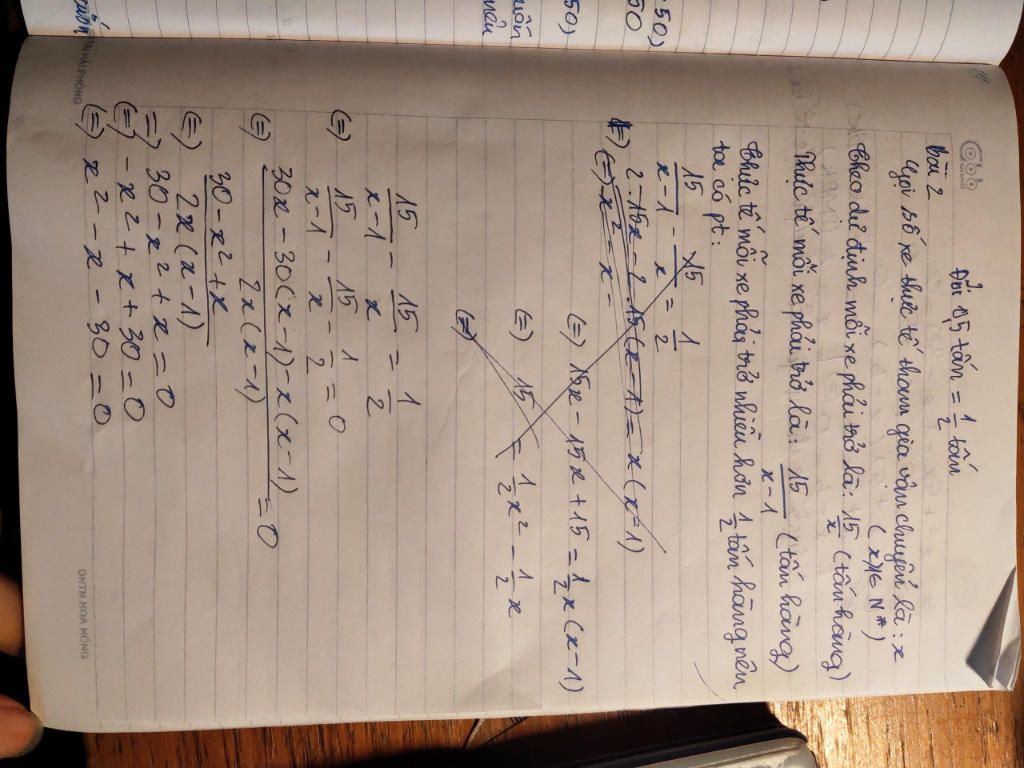 Bài 2
Đổi 0,5 tấn = 1/2 tấn
Gọi số xe thực tế tham gia vận chuyển là: x
(x ∈ N*)
Theo dự định mỗi xe phải trở là: 15/x (tấn hàng)
Thực tế mỗi xe phải trở là: 15/(x-1) (tấn hàng)
Thực tế mỗi xe phải trở nhiều hơn 1/2 tấn hàng nên
ta có pt:
15/(x-1) - 15/x = 1/2
(=) 15x - 15x + 15 = 1/2 x(x-1)
(=) 15 = 1/2 x² - 1/2 x
(=)
15/(x-1) - 15/x = 1/2
(=) 15/(x-1) - 15/x - 1/2 = 0
(=) (30x - 30(x-1) - x(x-1))/(2x(x-1)) = 0
(=) (30 - x² + x)/(2x(x-1))
=) 30 - x² + x = 0
(=) - x² + x + 30 = 0
(=) x² - x - 30 = 0
HẢI PHÒNG
QNTM HOA HỒNG